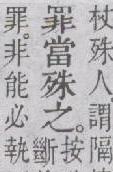 杖殊人謂隔
罪當殊之。
罪。非能必
執斷按